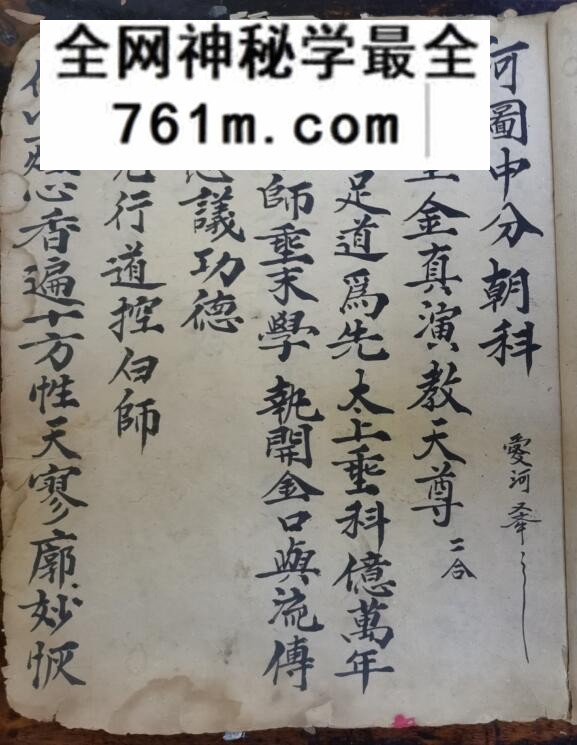 全网神秘学最全
761m.com
河圖中分朝科
愛河
金真演教天尊 二合
足道爲先太上垂科億萬年
師垂末學執開金口與流傳
議功德
行道控白師
心香遍十方性天寥廓妙恢